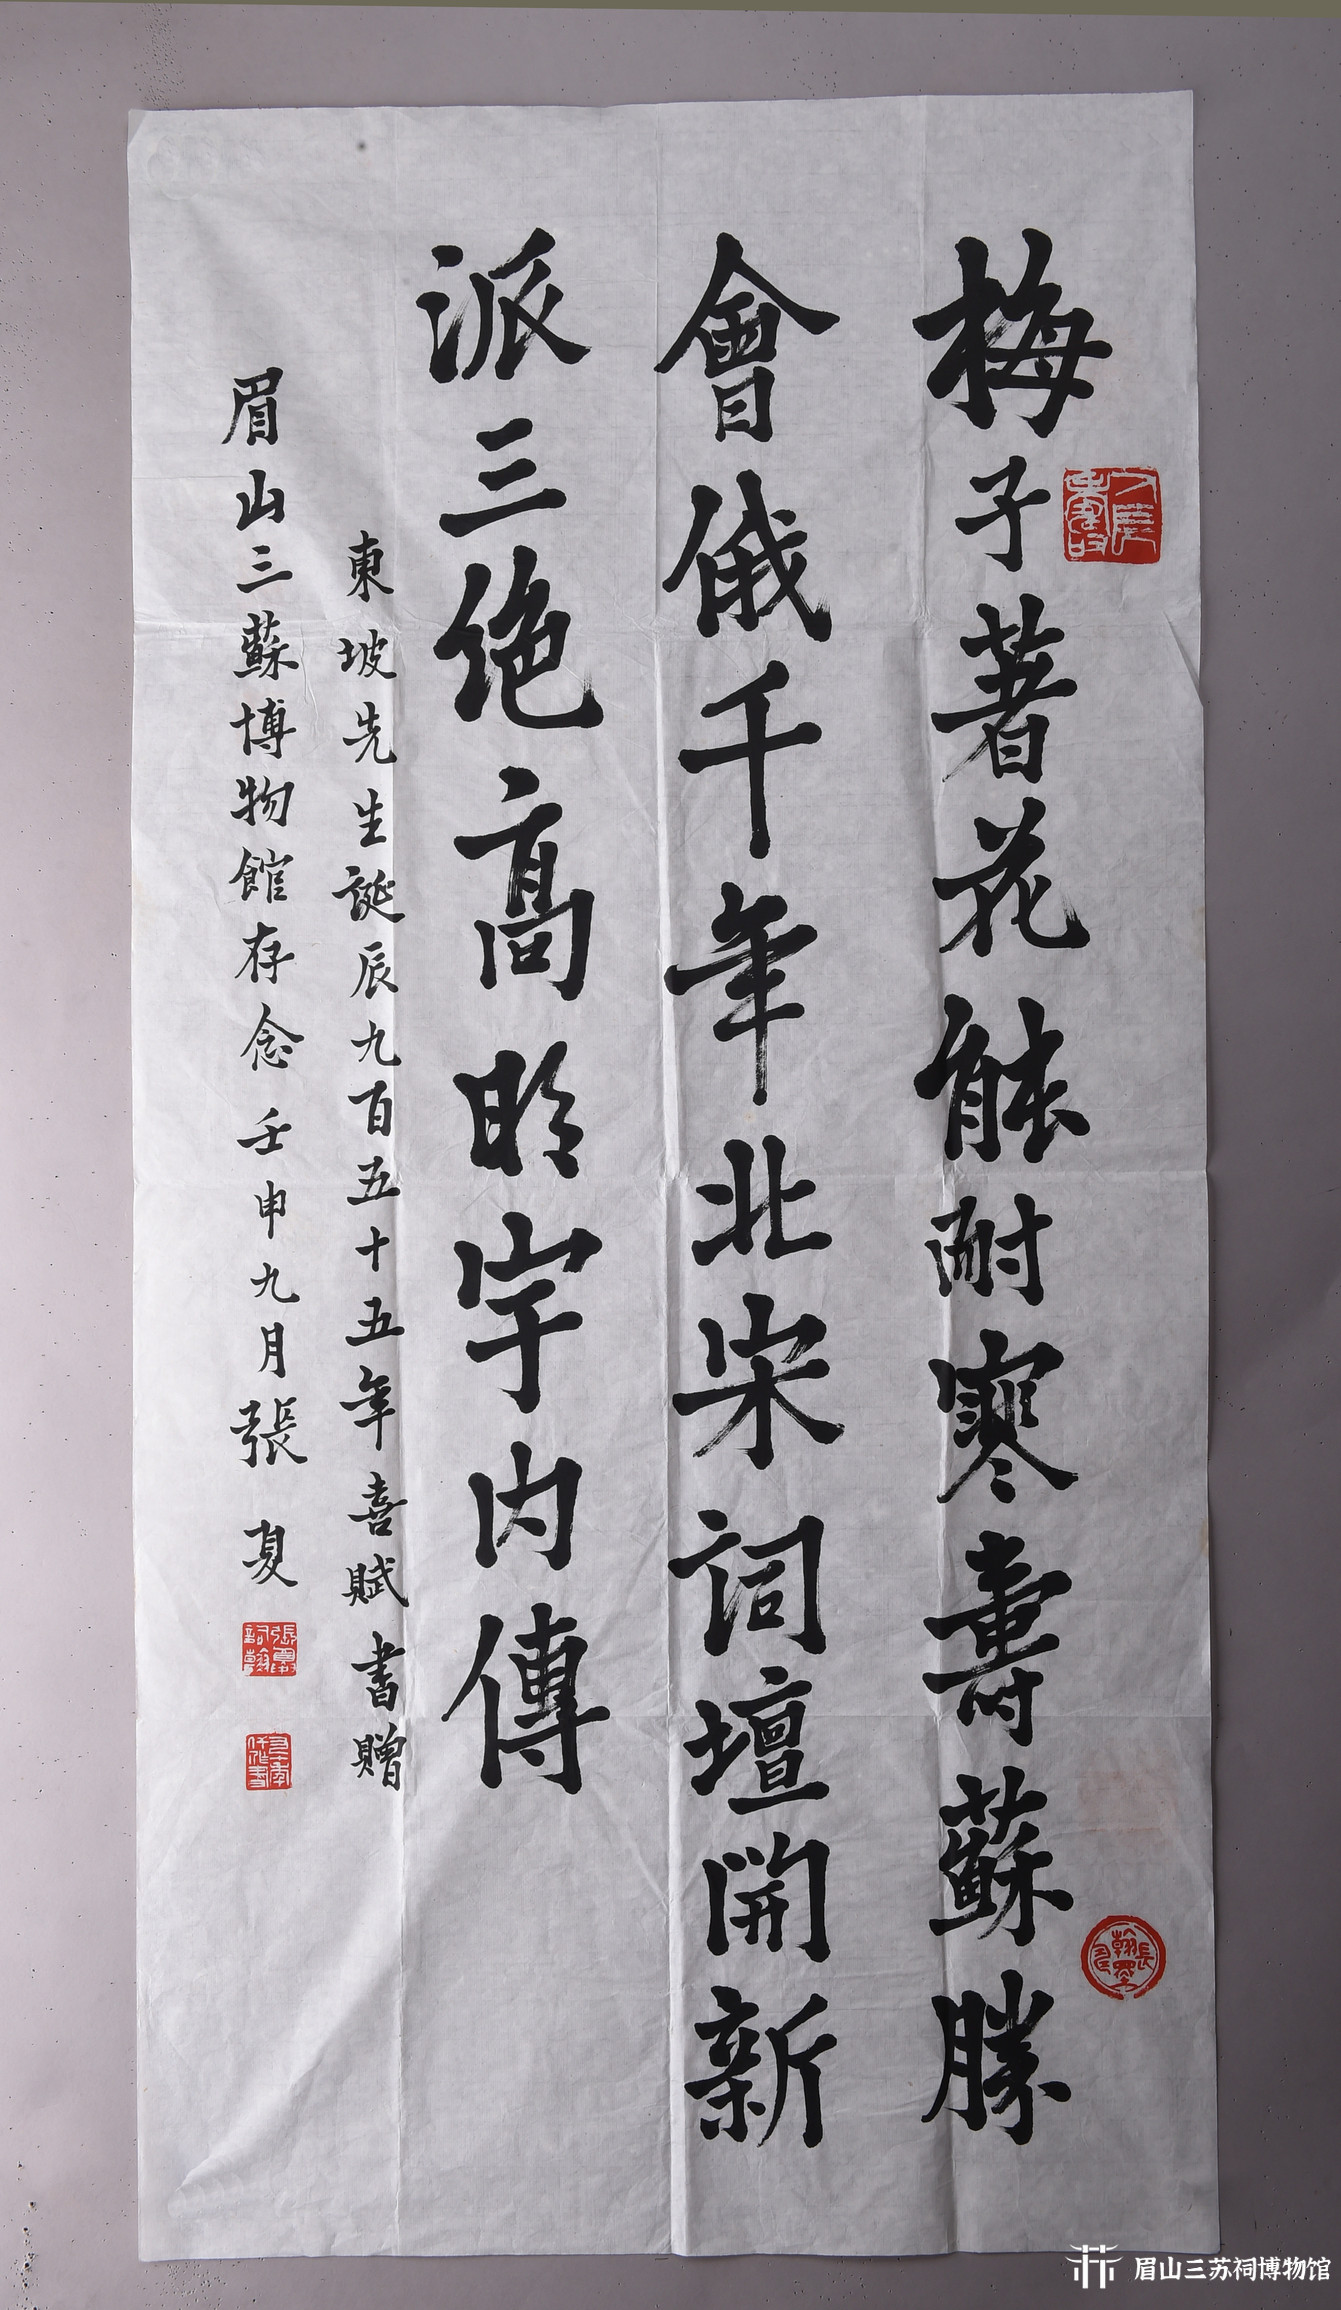 梅子著花能耐寒壽蘇勝
會俄千年北宋詞壇開新
派三绝高明宇内傳
東坡先生誕辰九百五十五年喜賦書贈
眉山三蘇博物館存念壬申九月張夏
張夏詞翰
眉山三苏祠博物馆